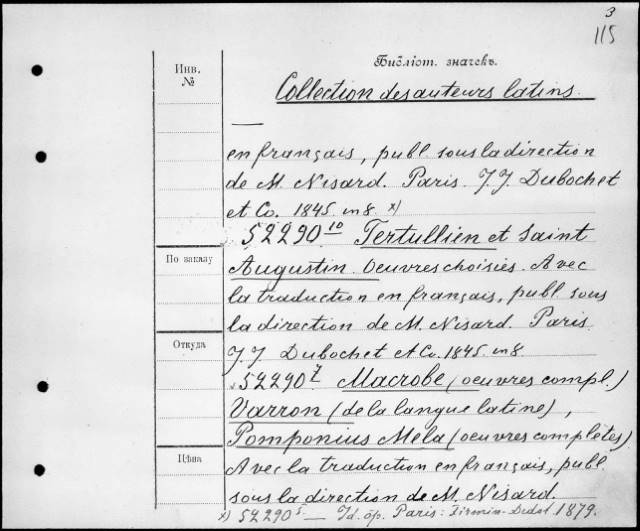 3
115
Инв.
№
Библіот. значекъ.
Collection des auteurs latins.
en français, publ. sous la direction
de M. Nisard. Paris. J. J. Dubochet
et Co. 1845. in 8. x)
52290 10 Tertullien et Saint
По заказу
Augustin. Oeuvres choisies. Avec
la traduction en français, publ. sous
la direction de M. Nisard. Paris.
Откуда
J. J. Dubochet et Co. 1845. in 8.
52290 7 Macrobe (oeuvres compl.)
Varron (de la langue latine),
Pomponius Mela (oeuvres complètes).
Цѣна
Avec la traduction en français, publ.
sous la direction de M. Nisard.
x) 52290 5 — Id. op. Paris: Firmin-Didot. 1879.